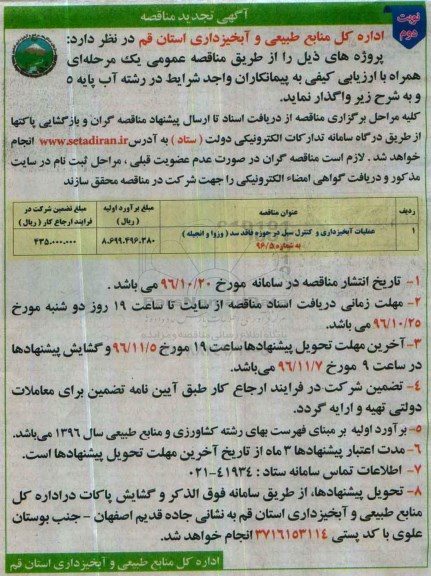 آگهی تجدید مناقصه
نوبت دوم
اداره کل منابع طبیعی و آبخیزداری استان قم در نظر دارد:
پروژه های ذیل را از طریق مناقصه عمومی یک مرحله‌ای
همراه با ارزیابی کیفی به پیمانکاران واجد شرایط در رشته آب پایه ۵
و به شرح زیر واگذار نماید.
کلیه مراحل برگزاری مناقصه از دریافت اسناد تا ارسال پیشنهاد مناقصه گران و بازگشایی پاکتها
از طریق درگاه سامانه تدارکات الکترونیکی دولت ( ستاد ) به آدرس www.setadiran.ir انجام
خواهد شد . لازم است مناقصه گران در صورت عدم عضویت قبلی ، مراحل ثبت نام در سایت
مذکور و دریافت گواهی امضاء الکترونیکی را جهت شرکت در مناقصه محقق سازند
ردیف عنوان مناقصه مبلغ برآورد اولیه ( ریال ) مبلغ تضمین شرکت در فرایند ارجاع کار ( ریال )
۱ عملیات آبخیزداری و کنترل سیل در حوزه فاقد سد ( وزوا و انجیله ) به شماره ۹۶/۵ ۸.۶۹۹.۴۹۶.۳۸۰ ۴۳۵.۰۰۰.۰۰۰
۱- تاریخ انتشار مناقصه در سامانه مورخ ۹۶/۱۰/۲۰ می باشد .
۲- مهلت زمانی دریافت اسناد مناقصه از سایت تا ساعت ۱۹ روز دو شنبه مورخ
۹۶/۱۰/۲۵ می باشد.
۳- آخرین مهلت تحویل پیشنهادها ساعت ۱۹ مورخ ۹۶/۱۱/۵ و گشایش پیشنهادها
در ساعت ۹ مورخ ۹۶/۱۱/۷ می‌باشد.
۴- تضمین شرکت در فرایند ارجاع کار طبق آیین نامه تضمین برای معاملات
دولتی تهیه و ارایه گردد.
۵- برآورد اولیه بر مبنای فهرست بهای رشته کشاورزی و منابع طبیعی سال ۱۳۹۶ می‌باشد.
۶- مدت اعتبار پیشنهادها ۳ ماه از تاریخ آخرین مهلت تحویل پیشنهادها است.
۷- اطلاعات تماس سامانه ستاد : ۴۱۹۳۴-۰۲۱
۸- تحویل پیشنهادها، از طریق سامانه فوق الذکر و گشایش پاکات در اداره کل
منابع طبیعی و آبخیزداری استان قم به نشانی جاده قدیم اصفهان - جنب بوستان
علوی با کد پستی ۳۷۱۶۱۵۳۱۱۴ انجام خواهد شد.
اداره کل منابع طبیعی و آبخیزداری استان قم